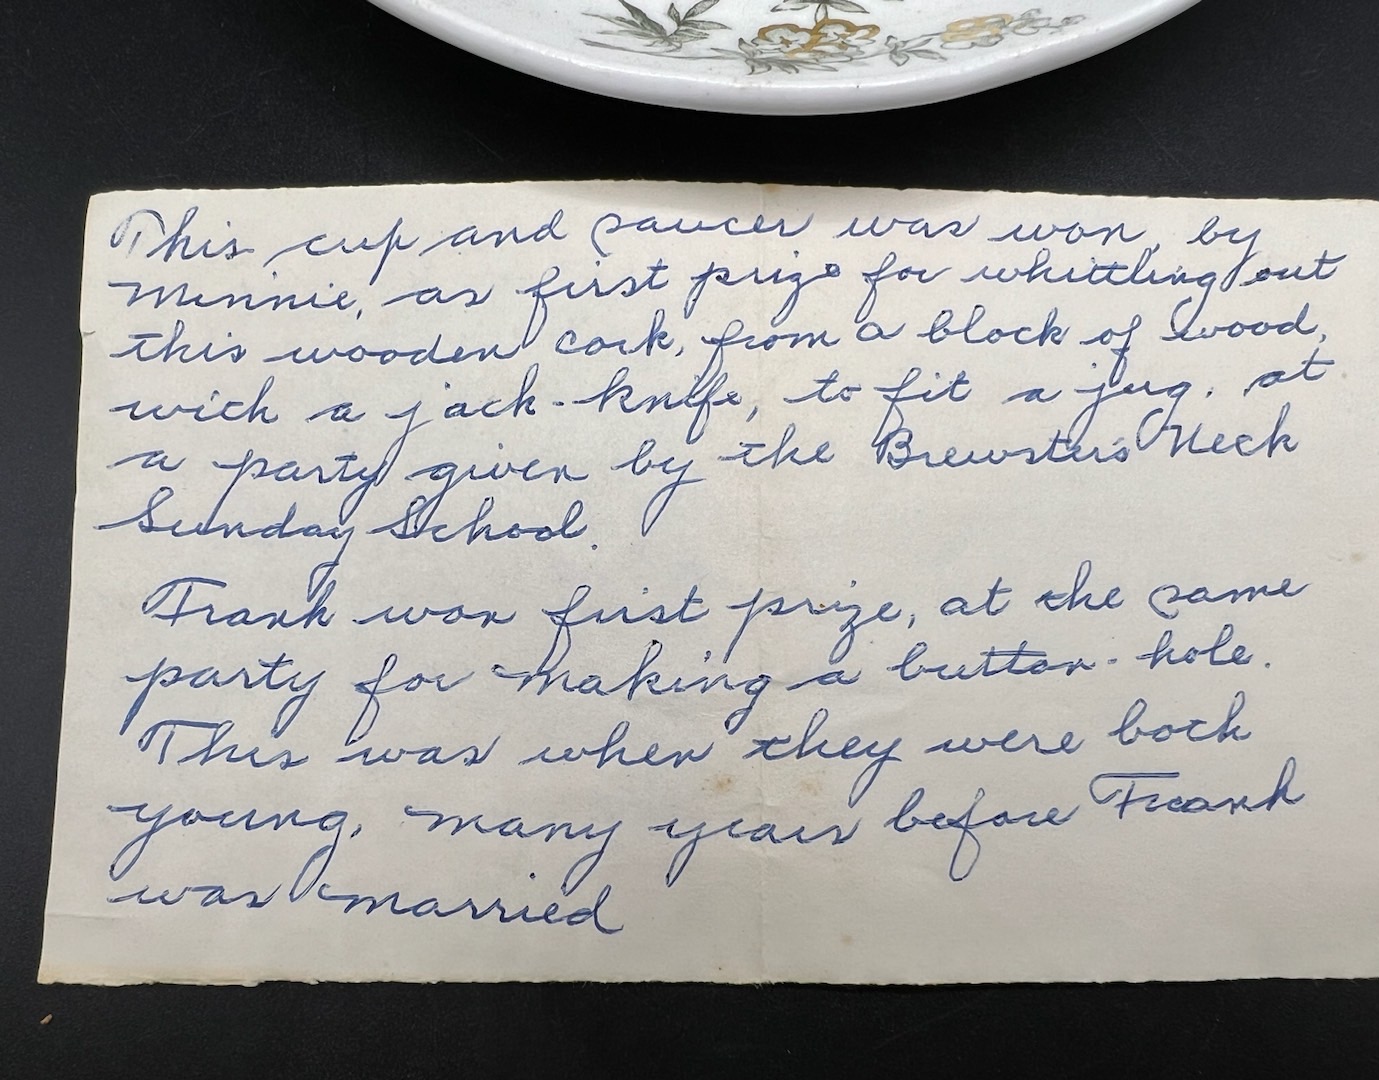 This cup and saucer was won, by
Minnie, as first prize for whittling out
this wooden cork, from a block of wood,
with a jack-knife, to fit a jug. at
a party given by the Brewster's Neck
Sunday School.
Frank won first prize, at the same
party for making a button-hole.
This was when they were both
young, many years before Frank
was married